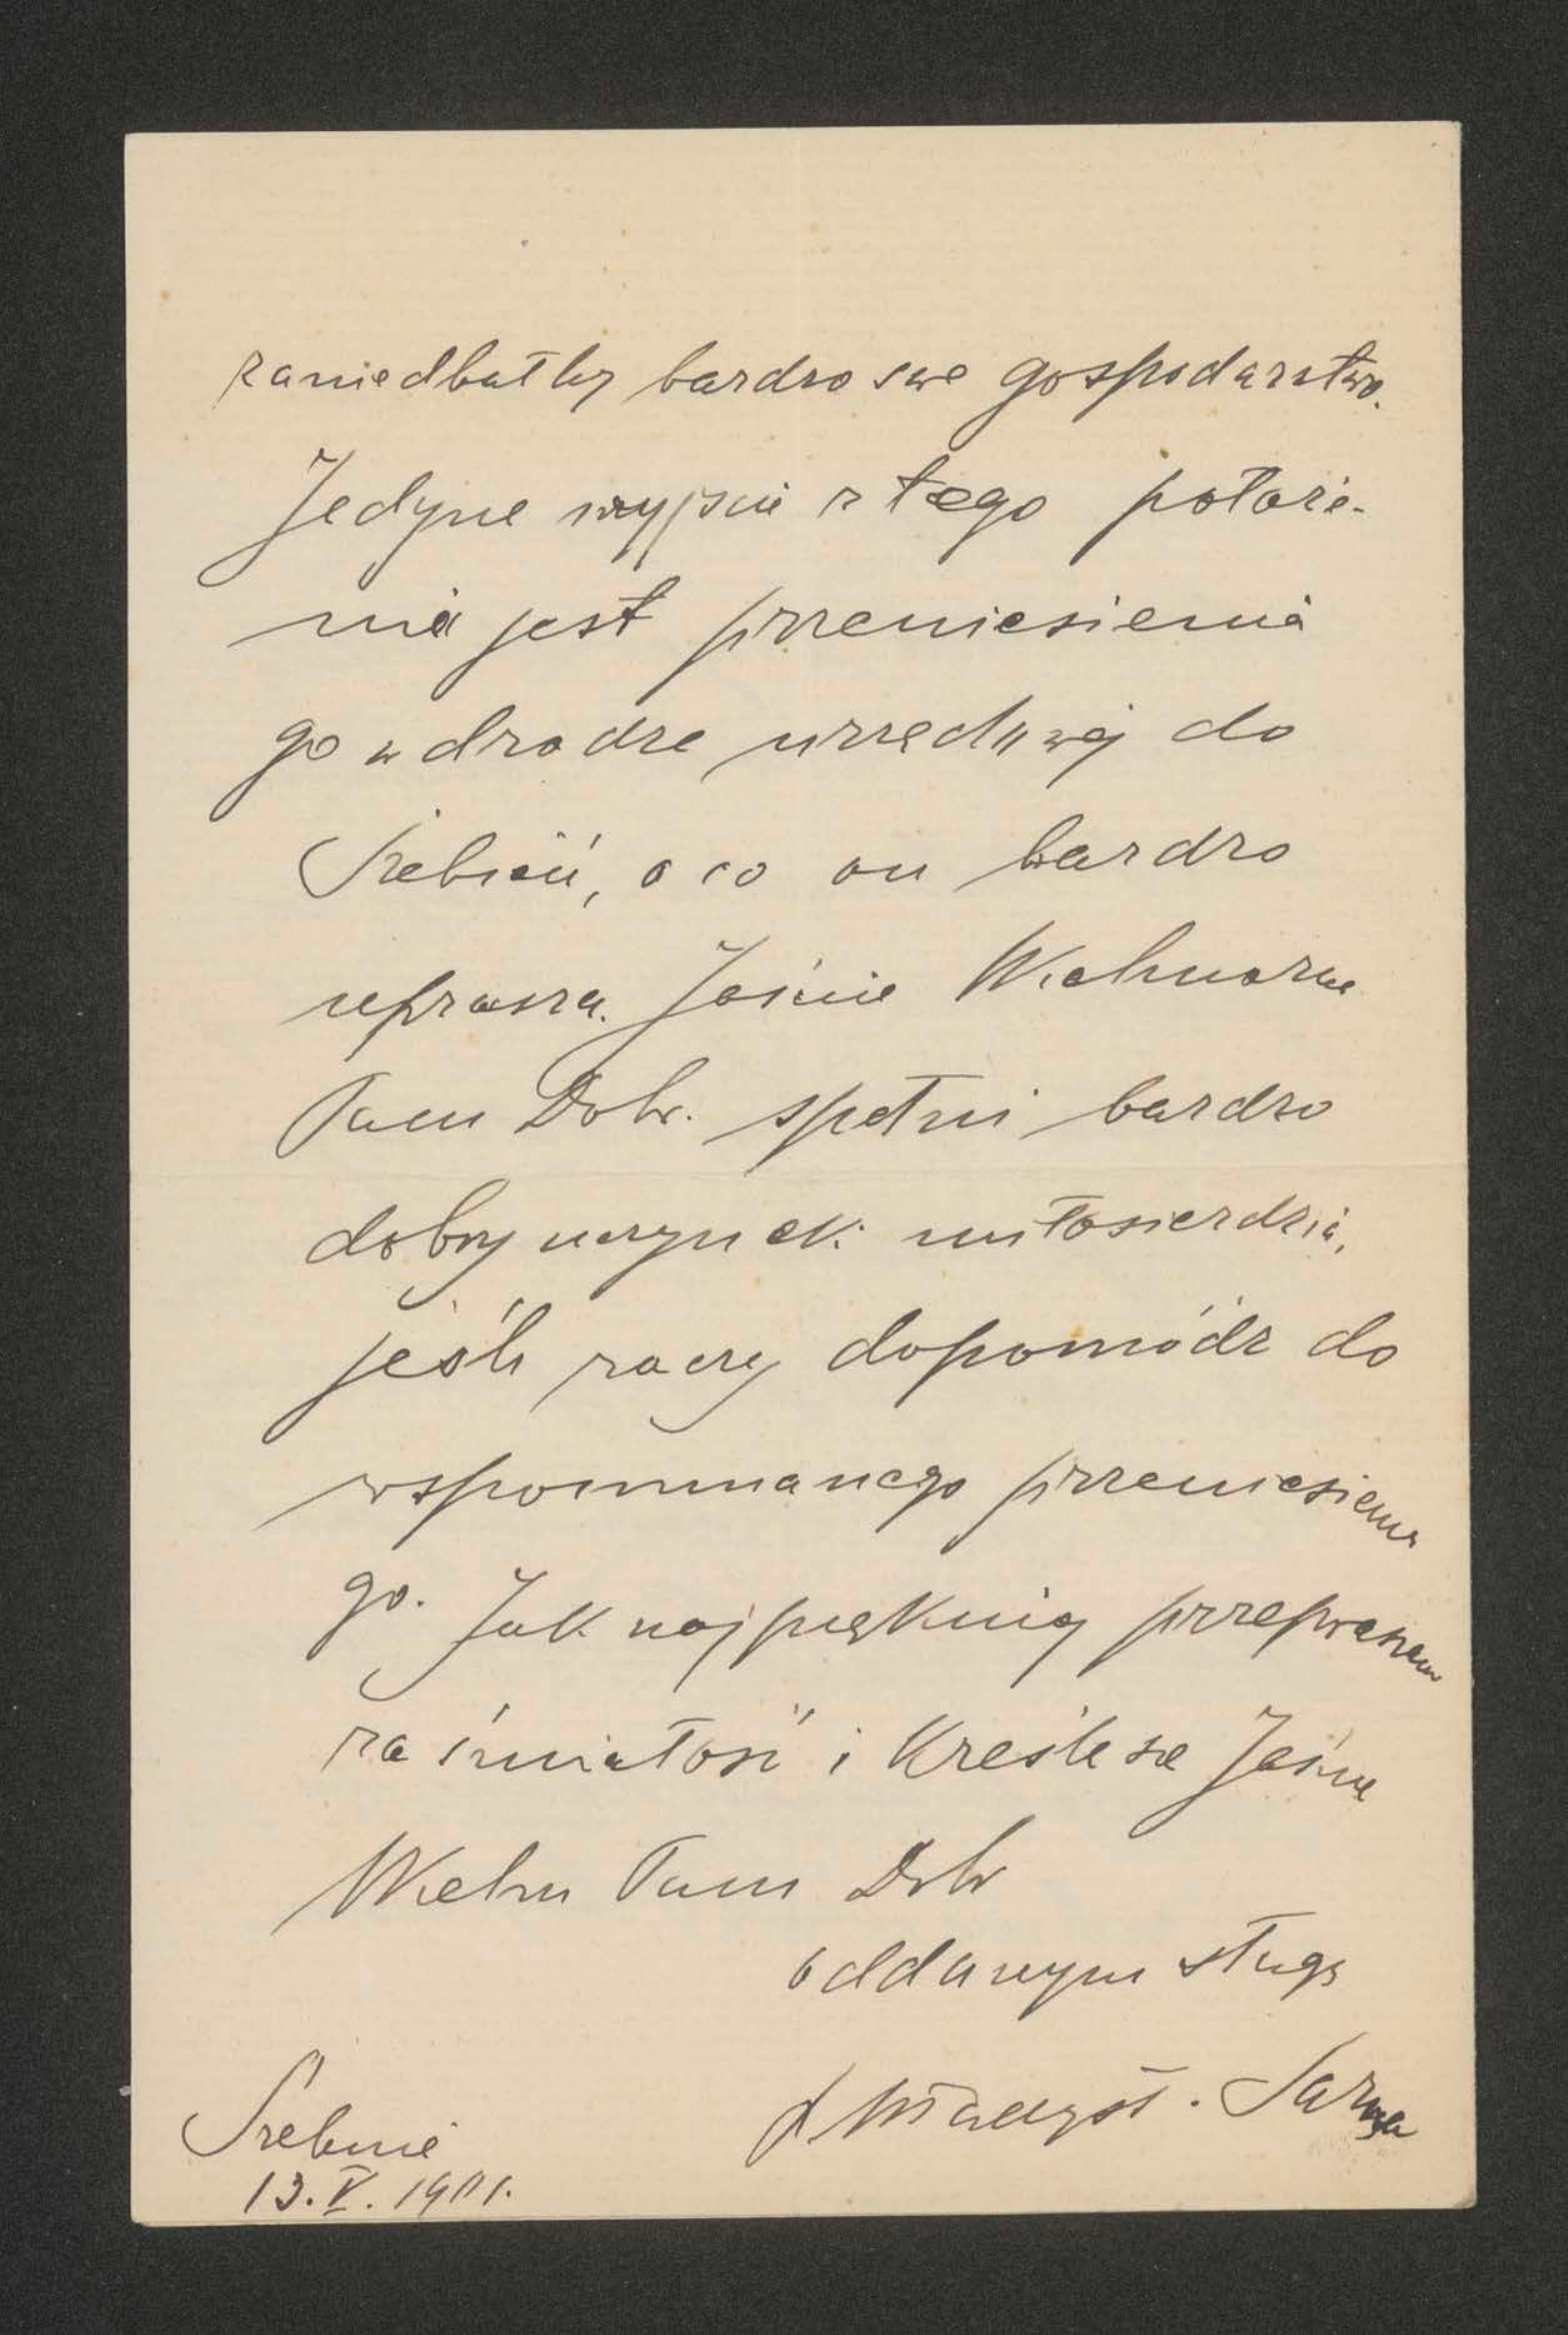 zaniedbałby bardzo swe gospodarstwo.
Jedyne wyjście z tego położe-
nia jest przeniesienia
go w drodze urzędowej do
Srebrnii, o co on bardzo
uprasza. Jaśnie Wielmożne
Panu Dobr. spełni bardzo
dobry uczynek miłosierdzia,
jeśli raczy dopomódz do
wspomnianego przeniesienia
go. Jak najpiękniej przepraszam
za śmiałość i kreślę się Jaśnie
Wielm Panu Dobr
oddanym sługą
X Władysł. Sarna
Szebnie
13. V. 1901.